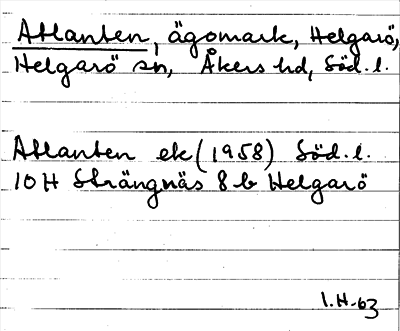 Atlanten, ägomark, Helgarö,
Helgarö sn, Åkers hd, Söd. l.
Atlanten ek (1958) Söd. l.
10 H Strängnäs 8 b Helgarö
I. H-63